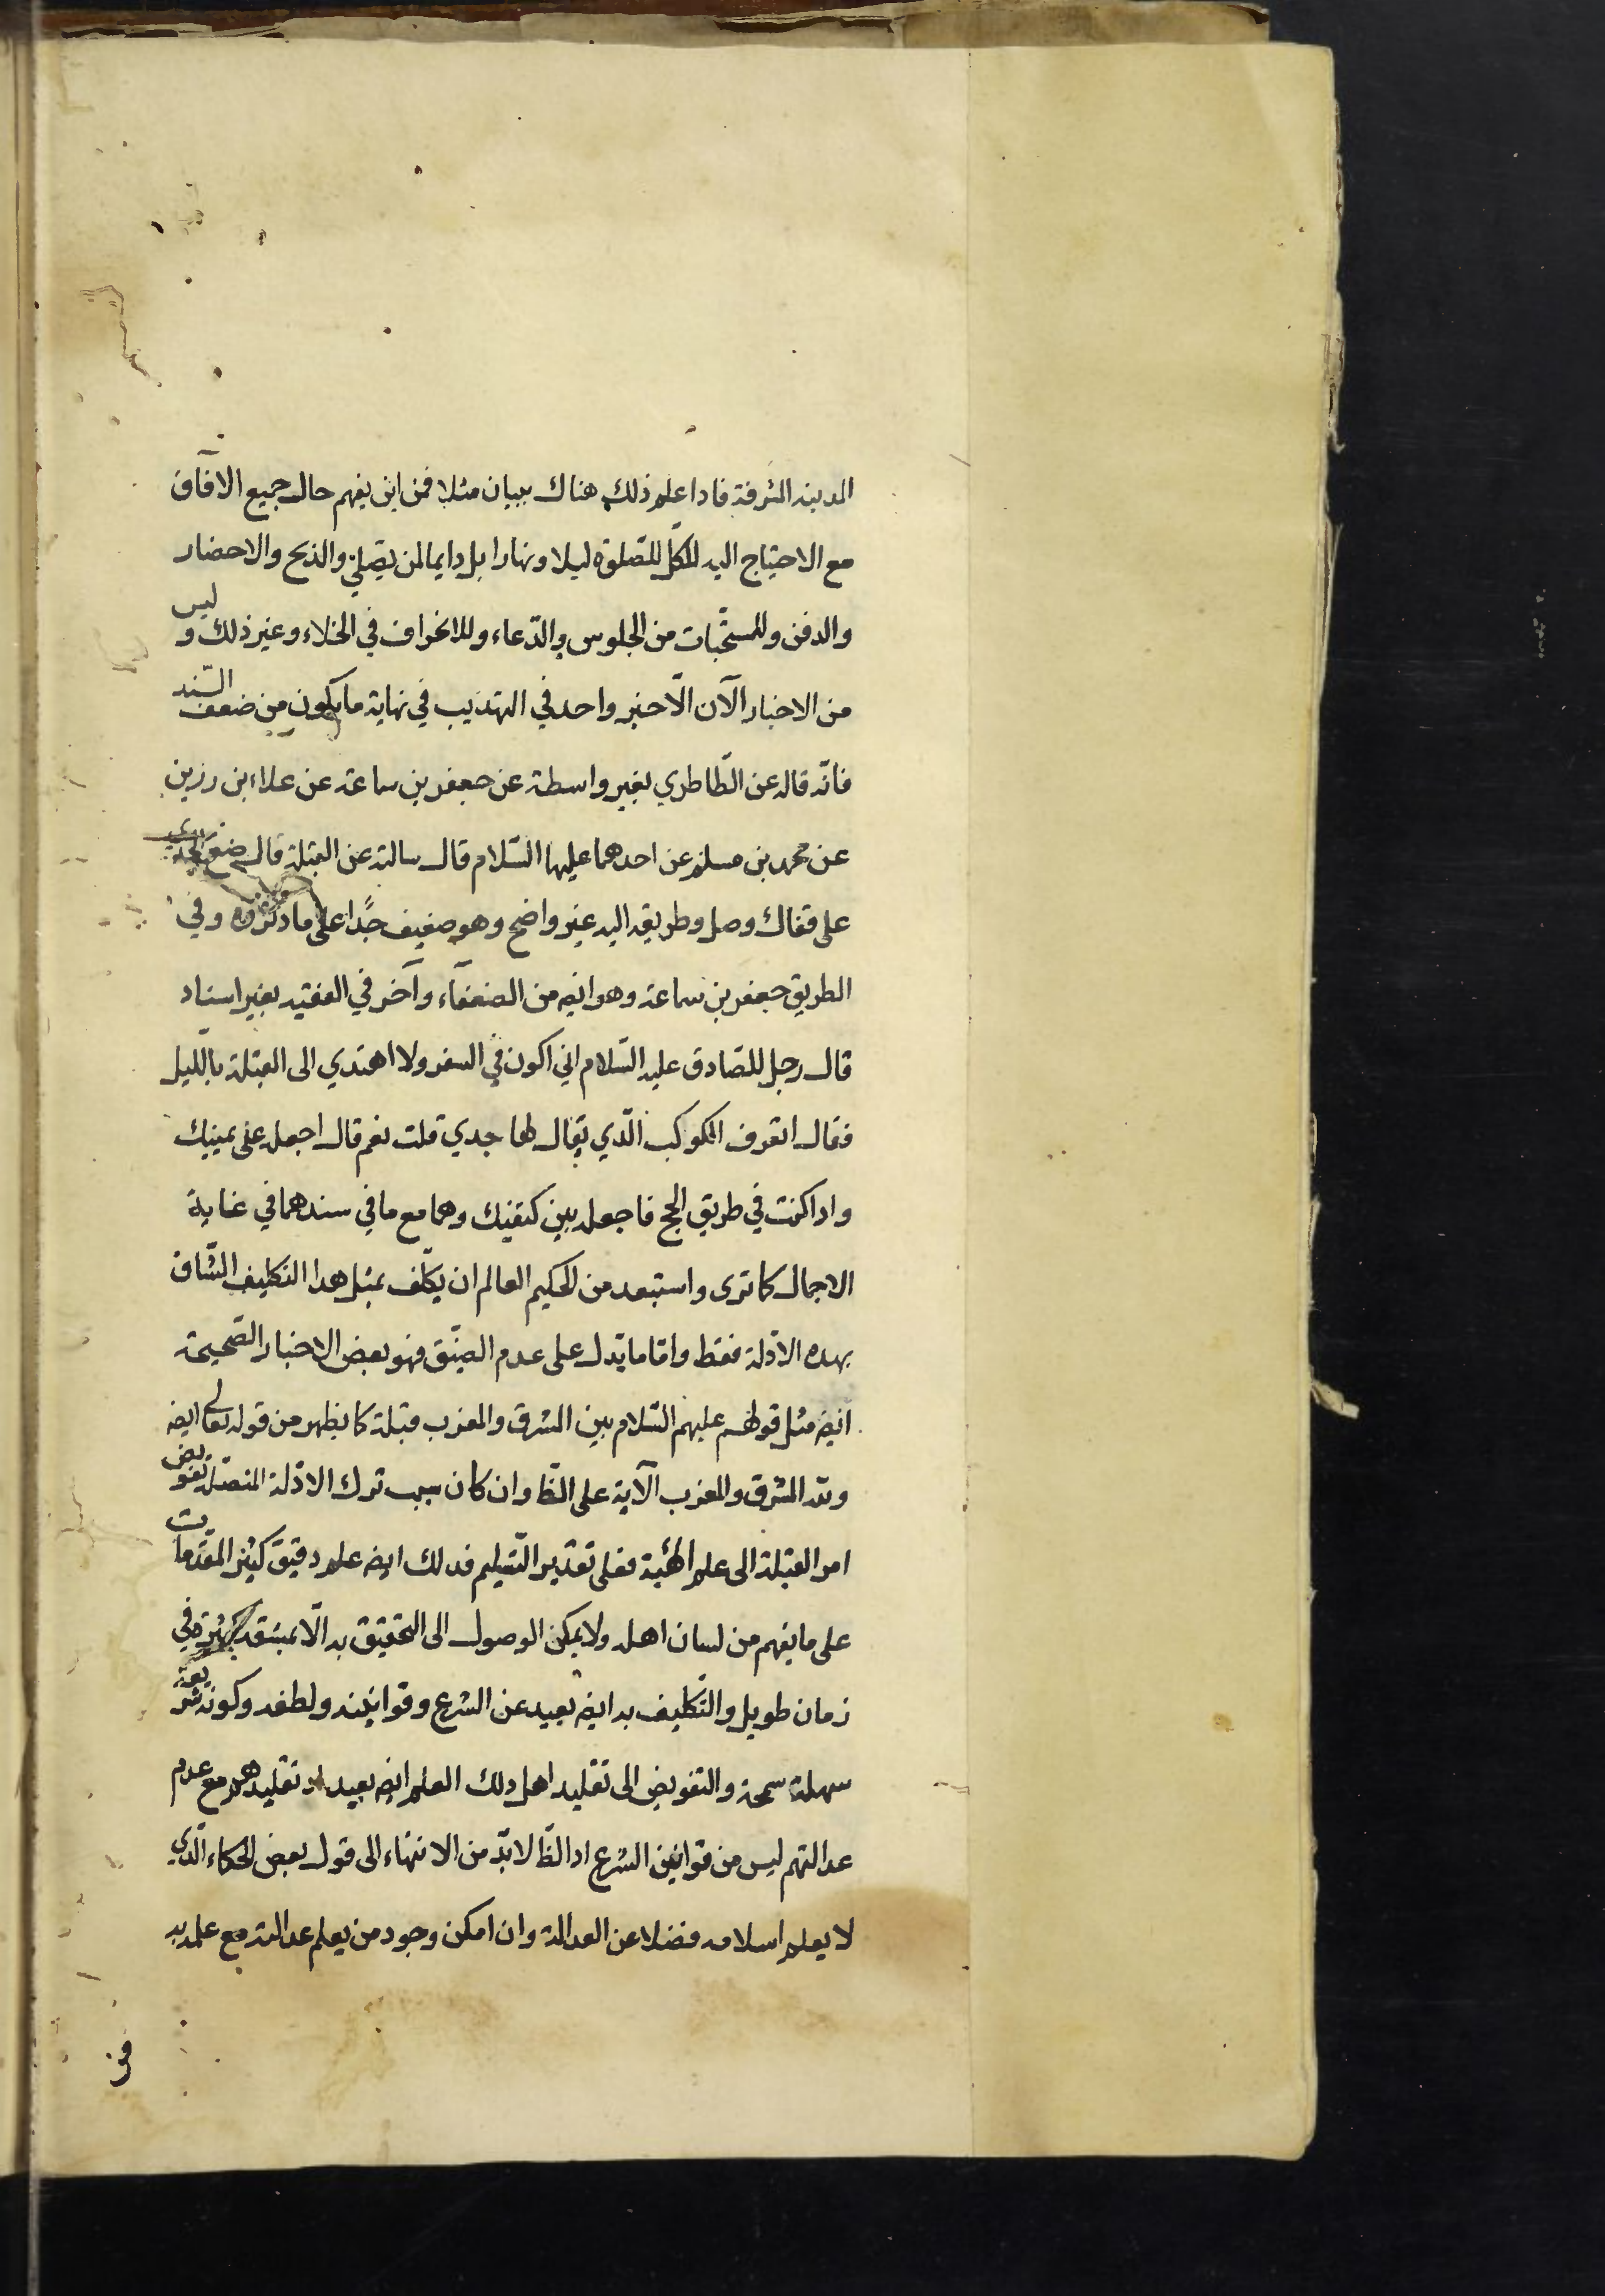 المدينه المشرفة فاذا علم ذلك هناك ببيان مثلا فمن اين يفهم حال جميع الآفاق
مع الاحتياج اليه للكلّ للصّلوة ليلا ونهارا بل دايما لمن يصلّي والذبح والاحضار
والدفن وللمستحبّات من الجلوس والدّعاء وللانحراف في الخلاء وغير ذلك وليس
من الاخبار الآن الّا خبر واحد في التهذيب في نهاية ما يكون من ضعف السّند
فانّه قال عن الطّاطري بغير واسطة عن جعفر بن سماعة عن علاء بن رزين
عن محمد بن مسلم عن احدهما عليهما السّلام قال سالته عن القبلة قال ضع الجدي
على قفاك وصل وطريقه اليه غير واضح وهو ضعيف جدًّا على ما ذكروه وفي
الطريق جعفر بن سماعة وهو ايضه من الضعفآء وآخر في الفقيه بغير اسناد
قال رجل للصّادق عليه السّلام اني اكون في السفر ولا اهتدي الى القبلة باللّيل
فقال اتعرف الكوكب الّذي يقال لها جدي قلت نعم قال اجعله على يمينك
واذا كنت في طريق الحج فاجعله بين كتفيك وهما مع ما في سندهما في غاية
الاجمال كما ترى واستبعد من الحكيم العالم ان يكلّف بمثل هذا التكليف الشّاق
بهذه الادّلة فقط وامّا ما يدل على عدم الضيّق فهو بعض الاخبار الصّحيحة
ايضه مثل قولهم عليهم السّلام بين المشرق والمغرب قبلة كما يظهر من قوله تعالى ايضه
ولله المشرق والمغرب الآية على الظّا وان كان سبب ترك الادّلة المفصّلة تفويض
امر القبلة الى علم الهيئة فعلى تقدير التّسليم فذلك ايضه علم دقيق كثير المقدّمات
على ما يفهم من لسان اهله ولا يمكن الوصول الى التحقيق به الّا بمشقة كثيرة في
زمان طويل والتّكليف به ايضه بعيد عن الشرع وقوانينه ولطفه وكونه شريعة
سهلة سمحة والتفويض الى تقليد اهل ذلك العلم ايضه بعيد اذ تقليدهم مع عدم
عدالتهم ليس من قوانين الشرع اذ الظّا لابدّ من الانتهاء الى قول بعض الحكماء الّذي
لا يعلم اسلامه فضلا عن العدالة وان امكن وجود من يعلم عدالته مع علمه به
فمن